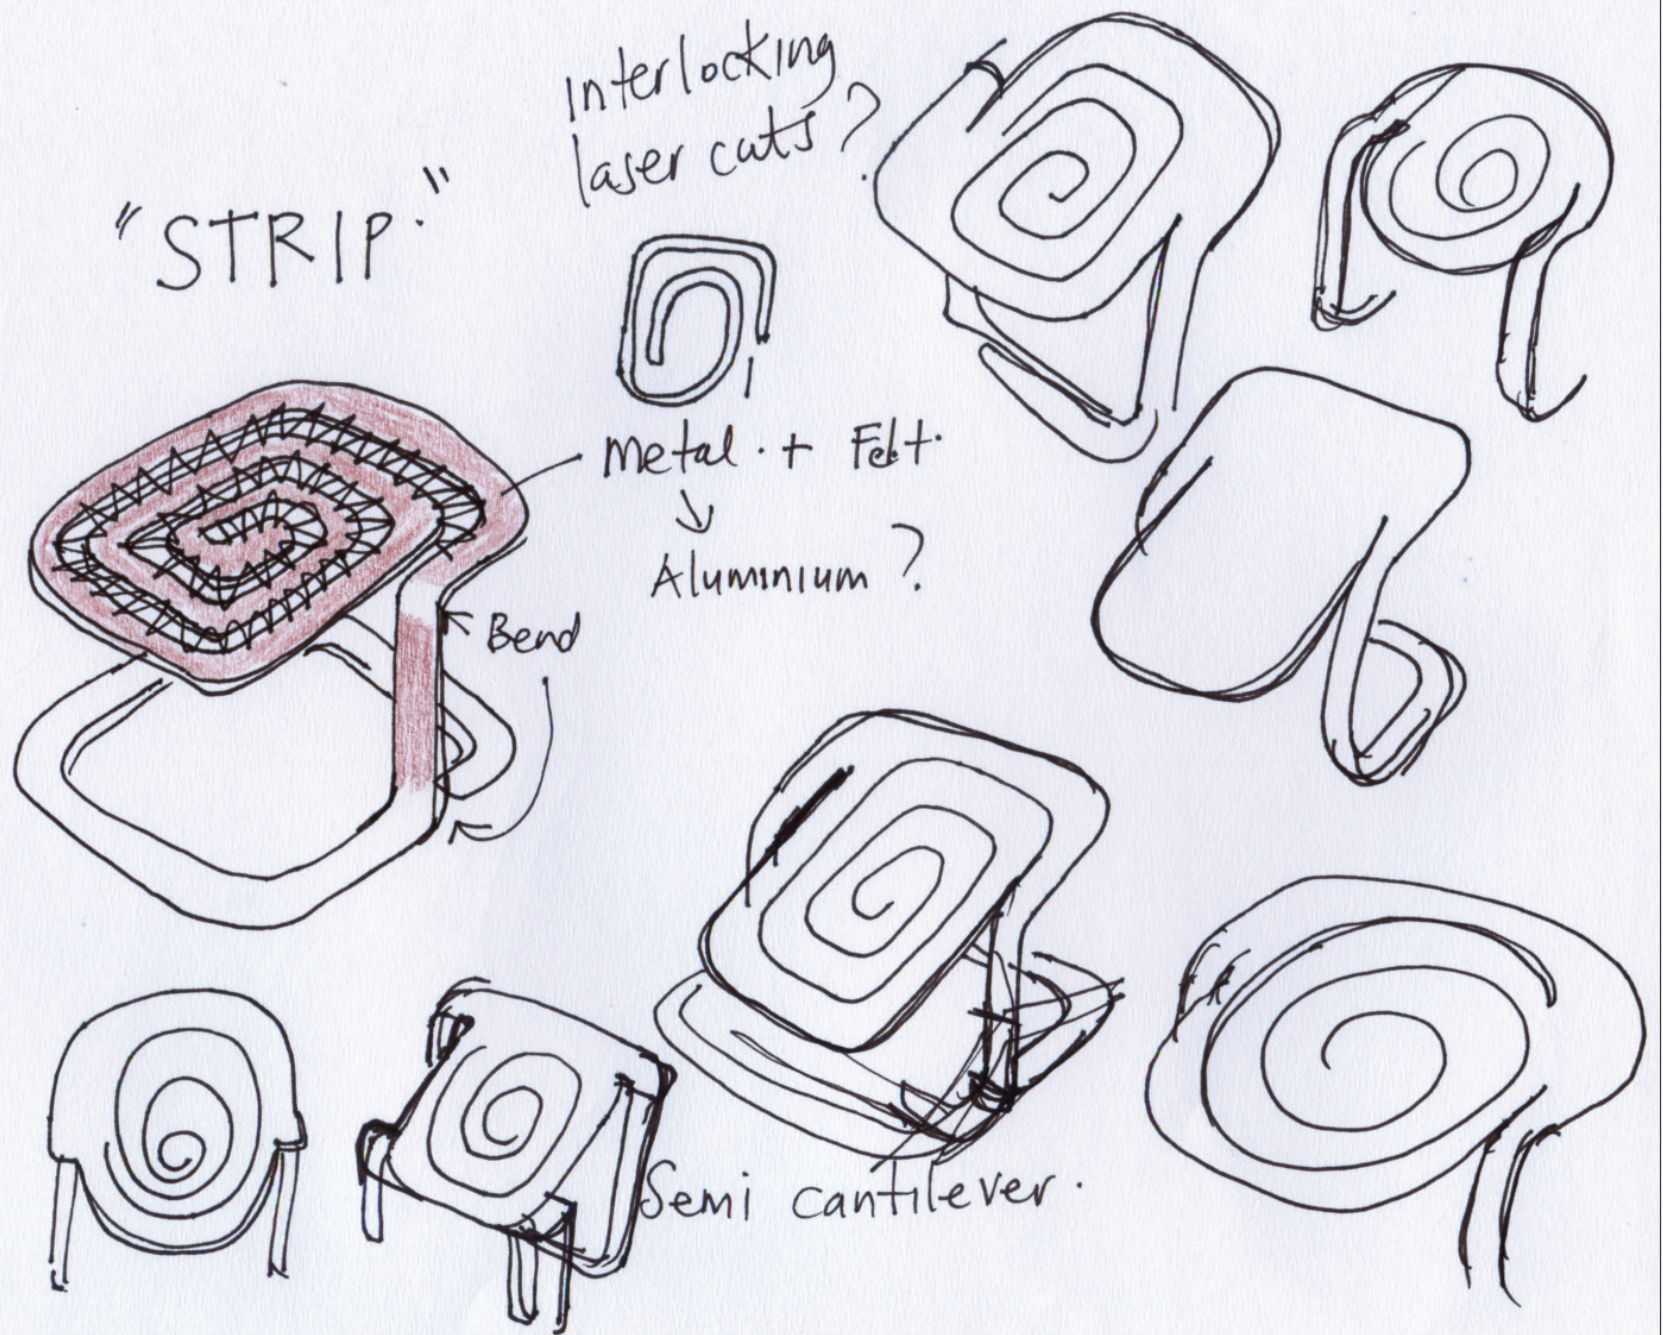 Interlocking
laser cuts?
"STRIP."
Metal. + Felt.
Aluminium?
Bend
Semi cantilever.